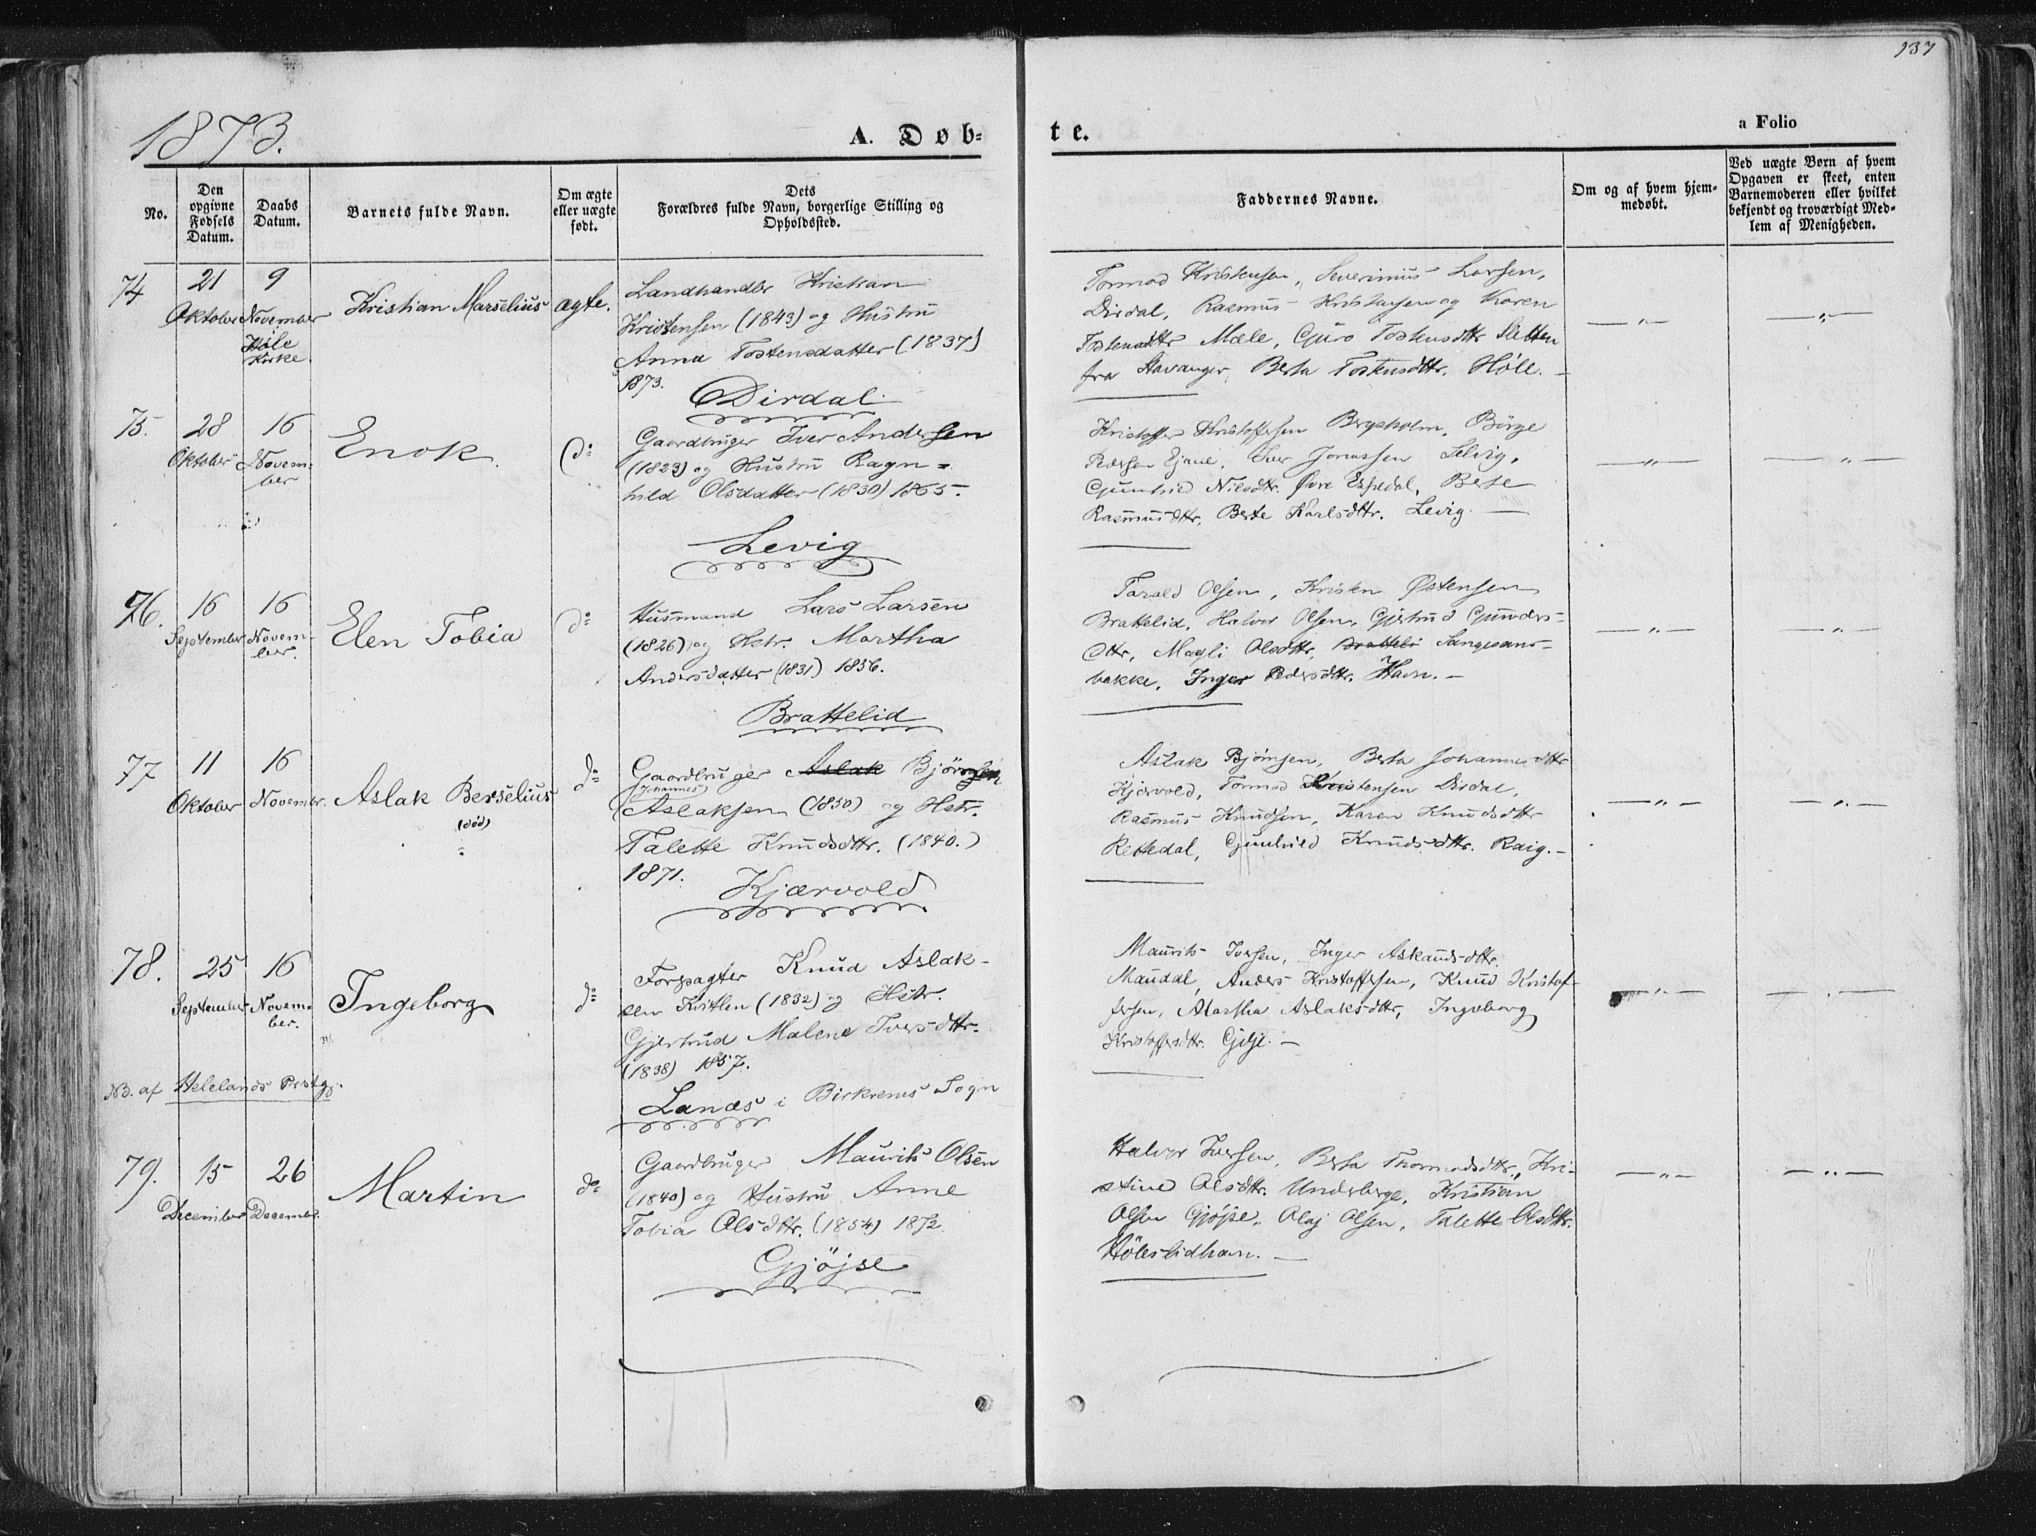 137
1873.
A. Døb-
te.
a Folio
No.
Den
opgivne
Fødsels
Datum.
Daabs
Datum.
Barnets fulde Navn.
Om ægte
eller uægte
født.
Dets
Forældres fulde Navn, borgerlige Stilling og
Opholdssted.
Faddernes Navne.
Om og af hvem hjem-
medøbt.
Ved uægte Børn af hvem
Opgaven er skeet, enten
Barnemoderen eller hvilket
bekjendt og troværdigt Med-
lem af Menigheden.
74
21
Oktober
9
November
Høle
Kirke
Kristian Marselius
ægte.
Landhandler Kristian
Kristensen (1843) og Hustru
Anna Tostensdatter (1837)
1873.
Dirdal
Tormod Kristensen, Severinus Larsen,
Dirdal, Rasmus Kristensen og Karen
Tostensdttr Mæle, Guro Tostensdttr Sletten
fra Stavanger, Berta Tostensdttr. Høle. —
— „ —
— „ —
75.
28
Oktober
16
Novem-
ber
Enok.
do
Gaardbruger Iver Andersen
(1823) og Hustru Ragn-
hild Olsdatter (1830) 1865.
Levig
Kristoffer Kristoffersen Bergsholm, Börge
Pedersen Ejane, Iver Jonassen Levig,
Gunhild Nilsdtr. Øvre Espedal, Berte
Rasmusdttr, Berte Karlsdttr. Levig. —
— „ —
— „ —
76.
16
September
16
Novem-
ber.
Elen Tobia
do
Husmand Lars Larsen
(1826) og Hstr. Martha
Andersdatter (1831) 1856.
Brattelid
Tarald Olsen, Kristen Østensen
Brattelid, Halvor Olsen, Gjertrud Gunders-
dttr, Magli Olsdttr, Bratteli Sangesand-
bakke, Inger Pedersdttr. Havn. —
— „ —
— „ —
77
11
Oktober
16
Novembr.
Aslak Berselius
(død)
do
Gaardbruger Aslak Bjørnsen
(Johannes)
Aslaksen (1850) og Hstr.
Talette Knudsdttr. (1840.)
1871.
Kjærvold
Aslak Bjørnsen, Berta Johannesdttr
Kjærvold, Tormod Kristensen Dirdal,
Rasmus Knudsen, Karen Knudsdttr
Rettedal, Gunhild Knudsdttr. Raig. —
— „ —
— „ —
78.
25
September
16
Novem-
ber.
Ingeborg
do
Forpagter Knud Aslak-
sen (1832) og Hstr.
Gjertrud Malene Iversdttr.
(1838) 1857.
NB. af Helelands Prstgj.
Landes i Birkrems Sogn
Maurits Iversen, Inger Askaudsdttr.
Maudal, Anders Kristoffersen, Knud Kristof-
fersen, Martha Aslaksdttr, Ingeborg
Kristoffersdttr. Gilje. —
— „ —
— „ —
79.
15
December
26
Decembr.
Martin
do
Gaardbruger Maurits Olsen
(1840) og Hustru Anne
Tobia Olsdttr. (1854) 1872
Gjøjse
Halvor Iversen, Berta Thormodsdttr, Kri-
stine Olsdttr. Underberge, Kristian
Olsen Gjøjse, Olaj Olsen, Talette Olsdttr.
Höleslidhavn. —
— „ —
— „ —